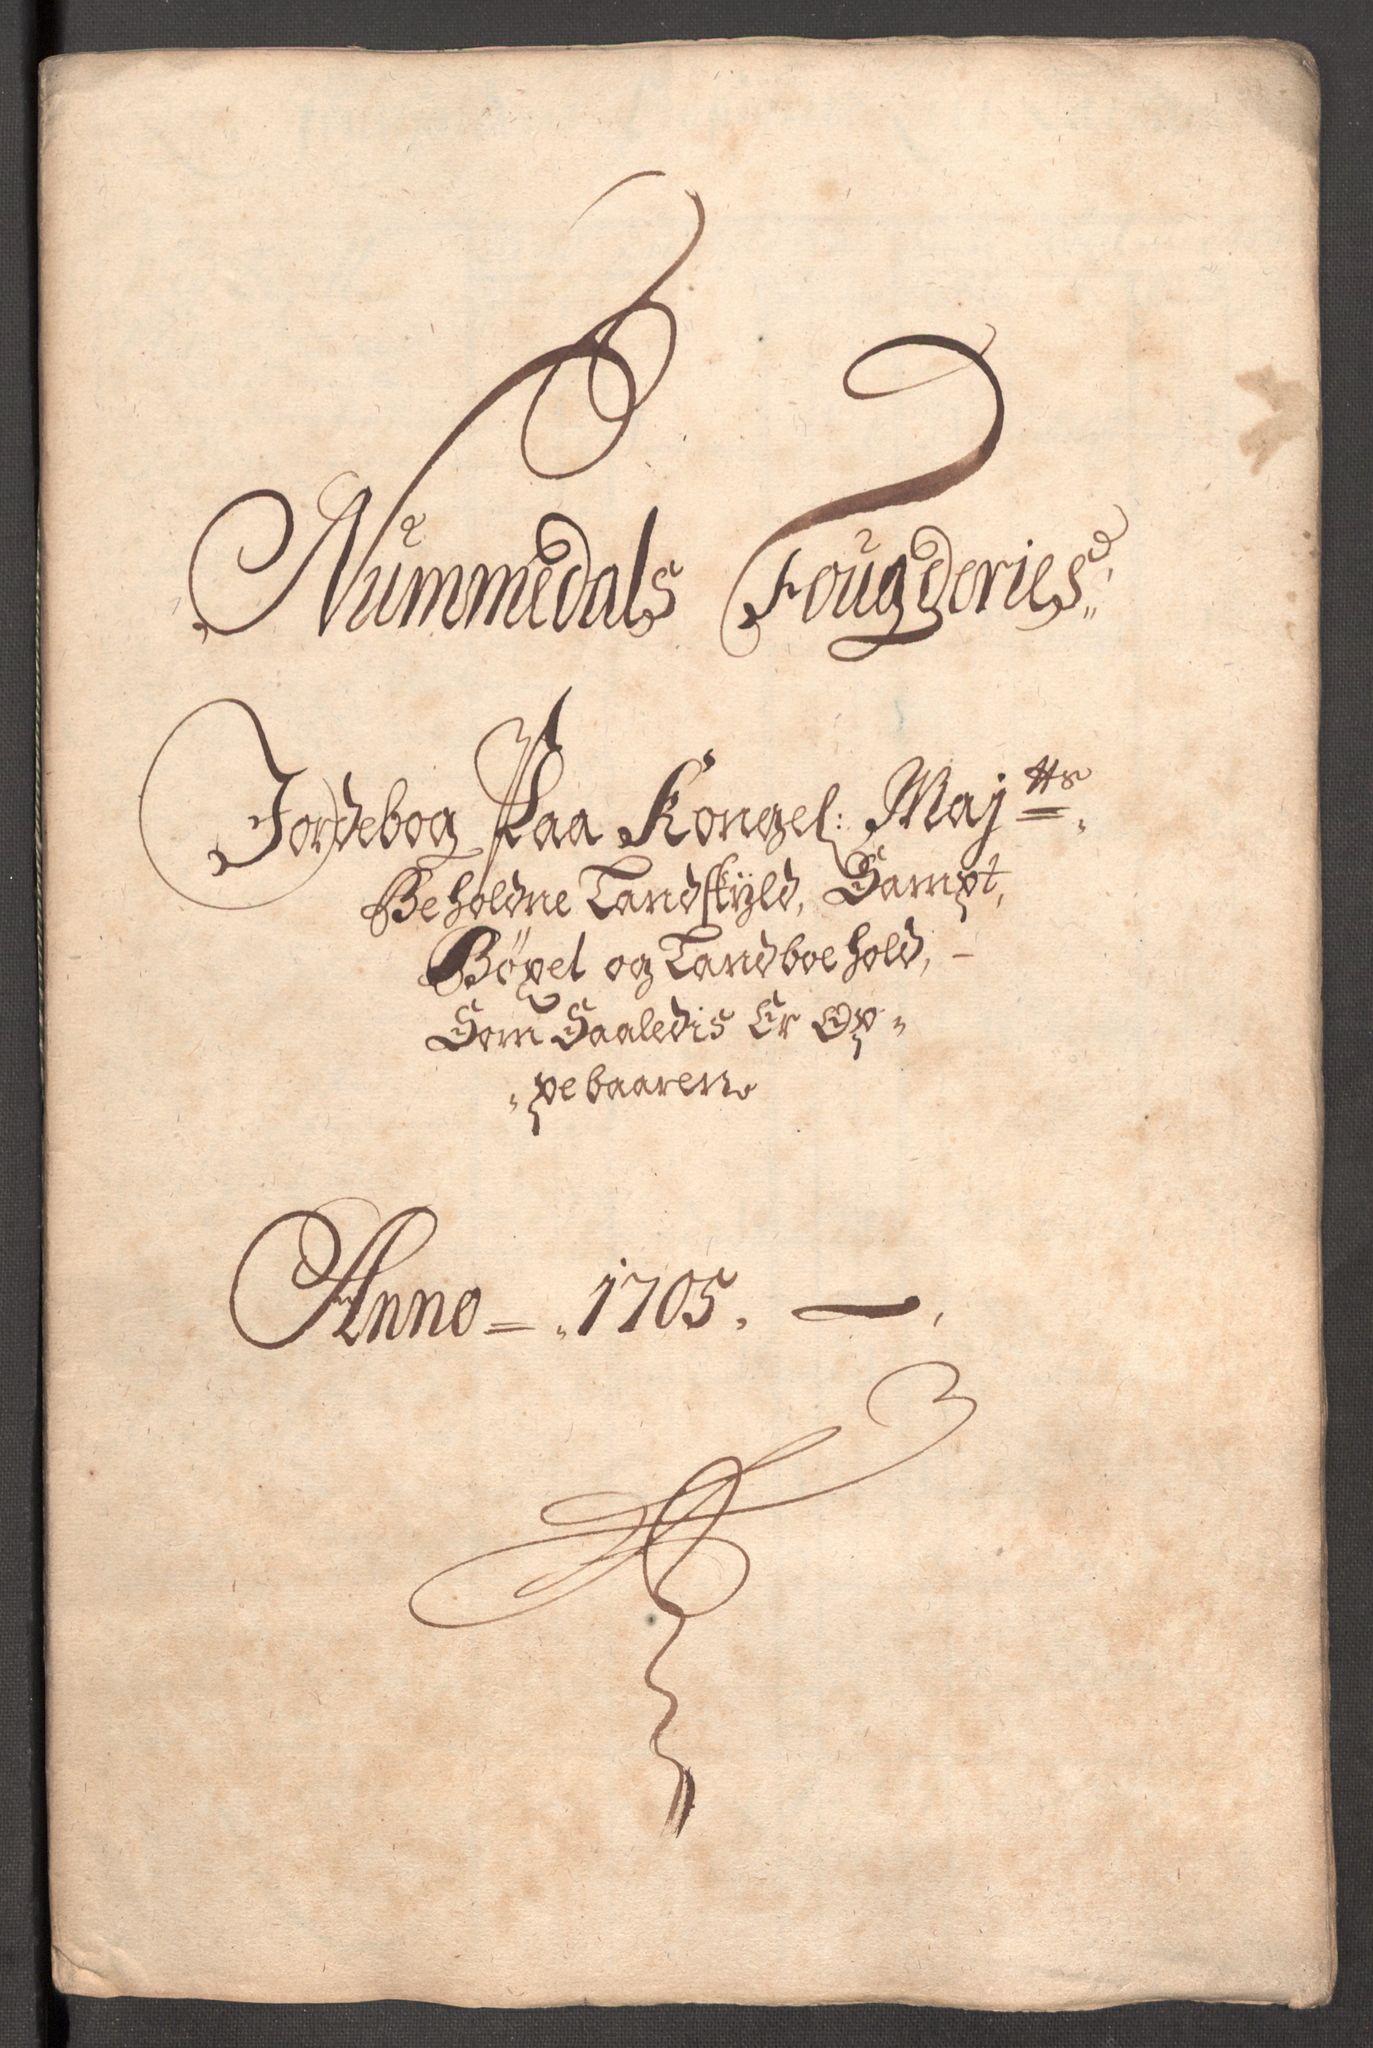 Nummedals Fougderies
Jordebog Paa Kongel: Maj:tts
Beholdne Landskyld, Sampt,
Böxel og Landboehold, -
Som Saaledis Er Op-
-pebaaren
Anno = . 1705. —.